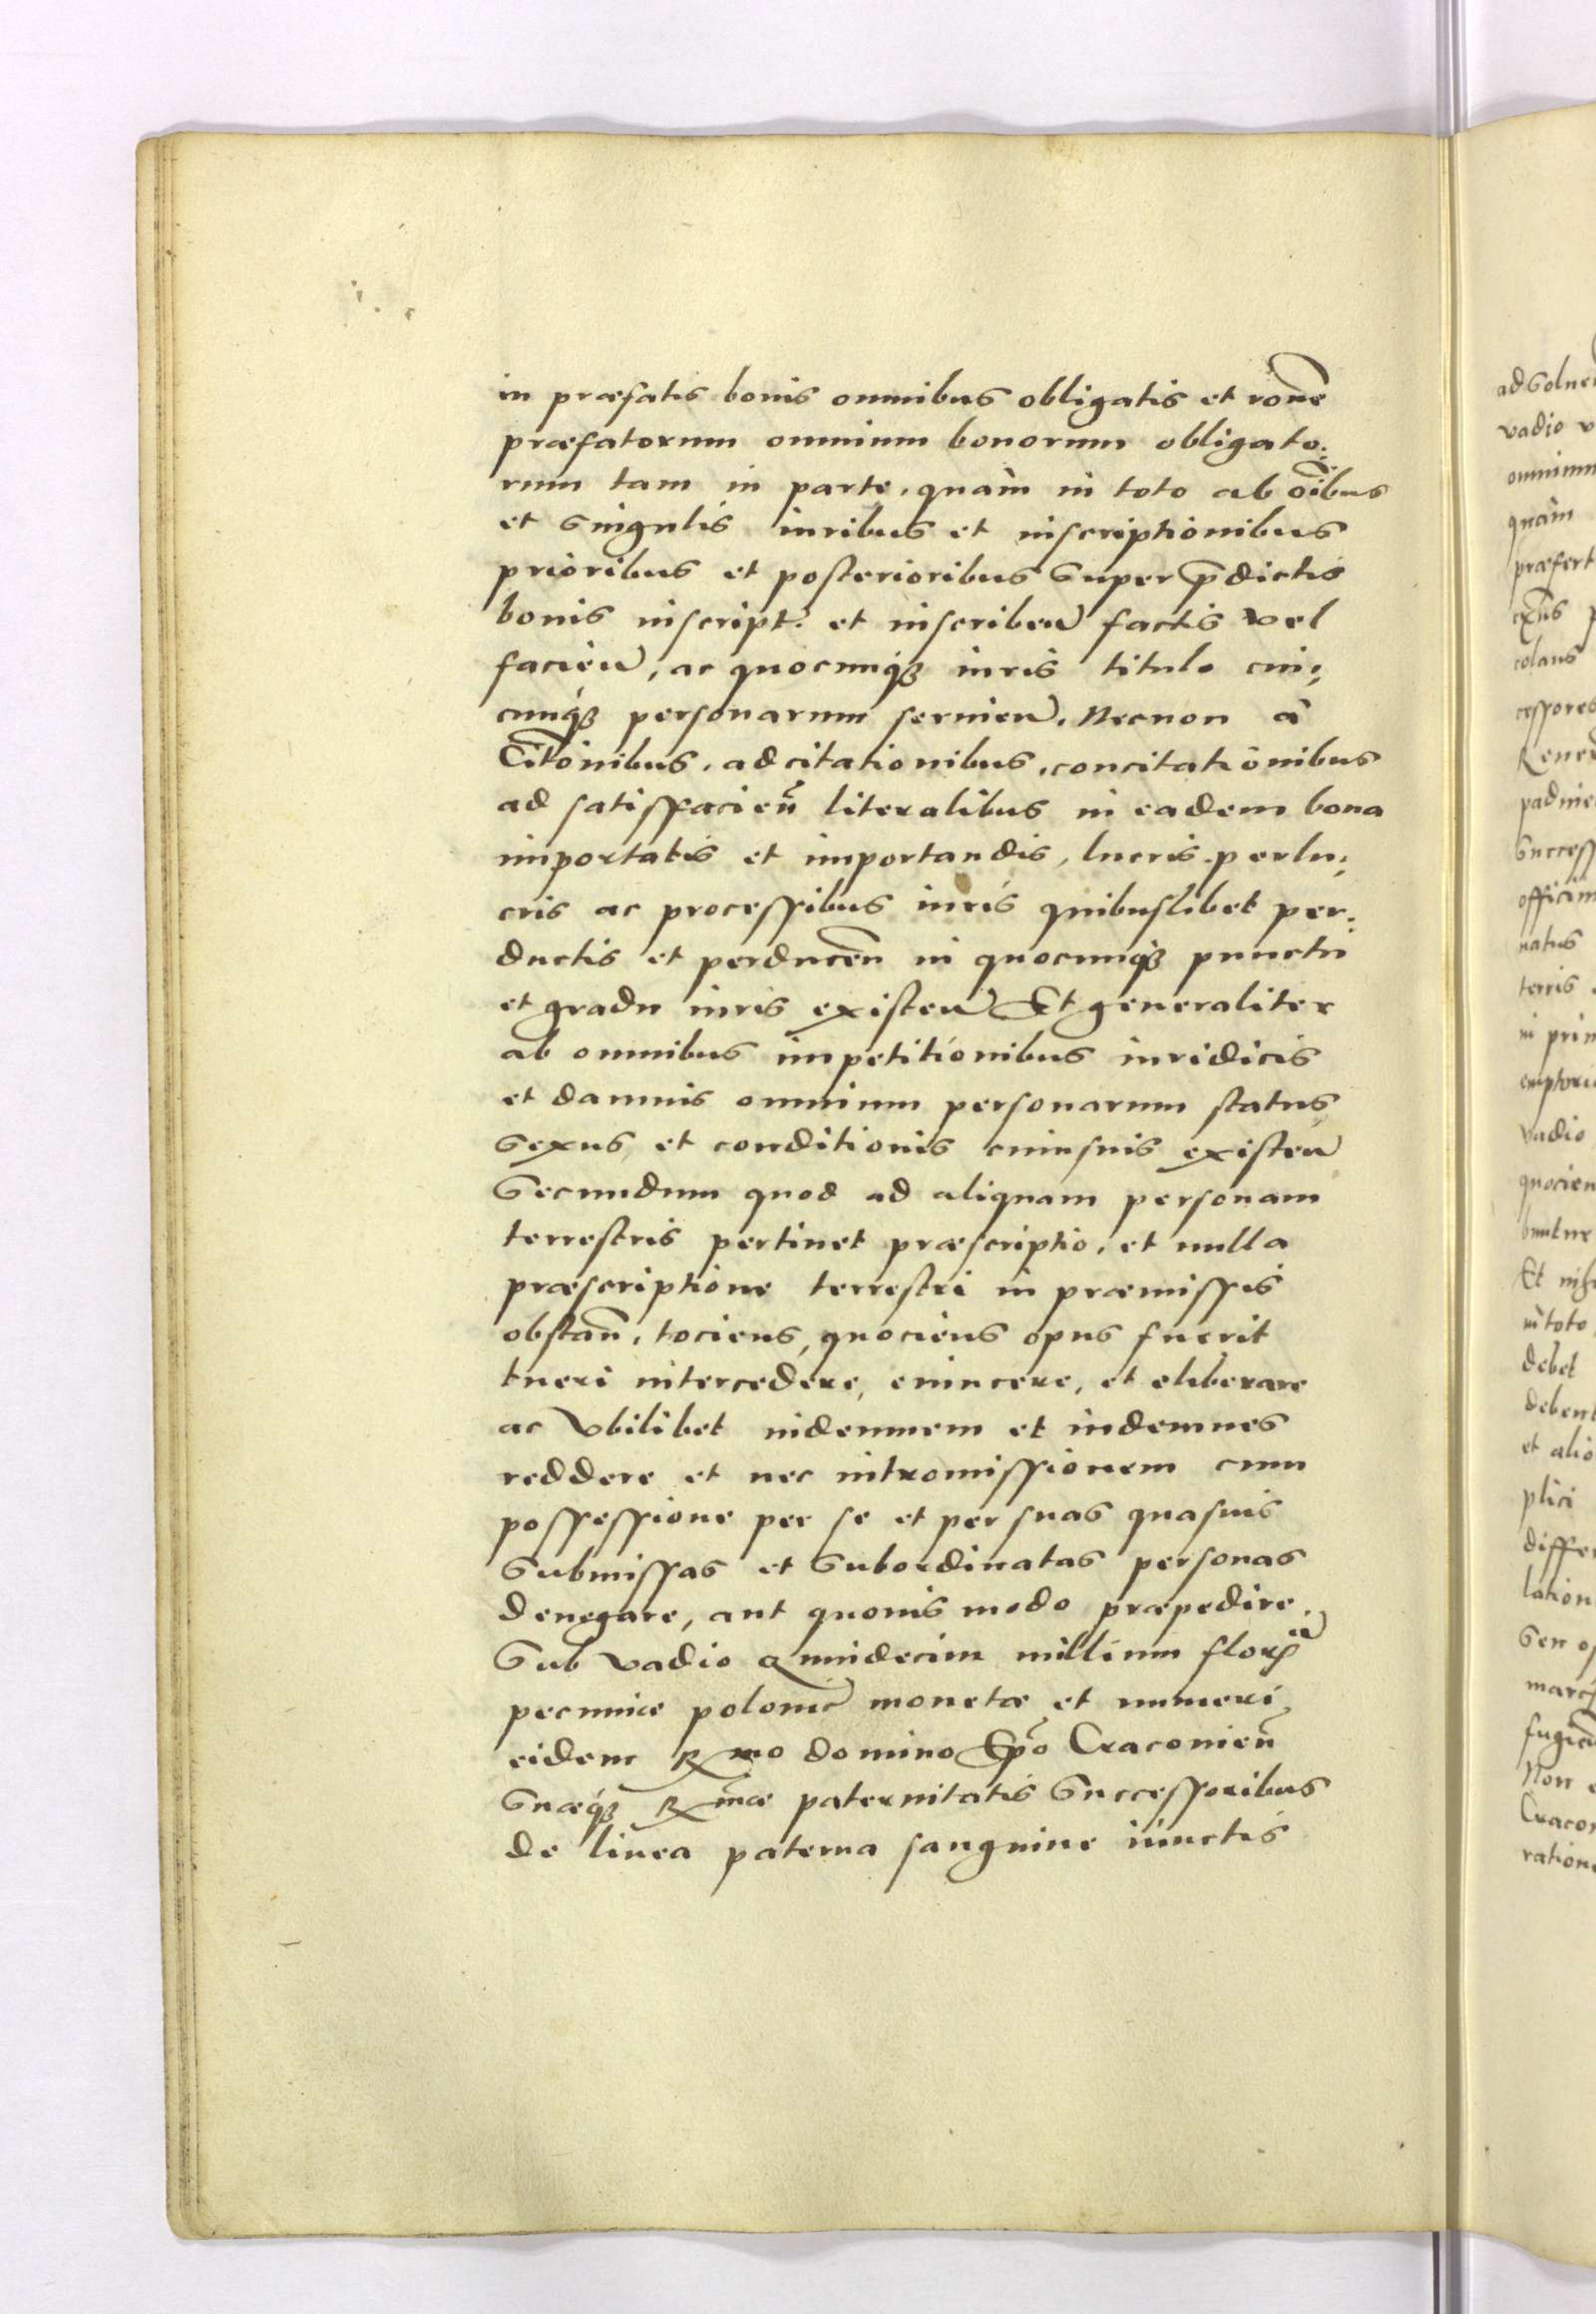 in præfatis bonis omnibus obligatis et rone
præfatorum omnium bonorum obligato:
rum tam in parte, quàm in toto ab oibus
et singulis iuribus et inscriptionibus
prioribus et posterioribus super pdictis
bonis inscript: et inscriben factis vel
facien, ac quocunq3 iuris titulo cui:
cunq3 personarum seruien. Necnon à
Citonibus, adcitationibus, concitationibus
ad satisfacien literalibus in eadem bona
importatis et importandis, lucris perlu:
cris ac processibus iuris quibuslibet per:
ductis et perducen in quocunq3 punctu
et gradu iuris existen Et generaliter
ab omnibus impetitionibus iuridicis
et damnis omnium personarum status,
sexus, et conditionis cuiusuis existen
Secundum quod ad aliquam personam
terrestris pertinet præscriptio, et nulla
præscriptione terrestri in præmissis
obstan, tociens, quociens opus fuerit
tueri intercedere, euincere, et eliberare
ac vbilibet indemnem et indemnes
reddere et nec intromissionem cum
possessione per se et per suas quasuis
submissas et subordinatas personas
denegare, aut quouis modo præpedire.
Sub vadio quindecim millium flor
pecuniæ polonic monetæ et numeri,
eidem Rmo domino Epo Cracouien
Suæq3 Rmæ paternitatis Successoribus
de linea paterna sanguine iunctis
ad solue
vadio v
omnium
quàm
præfert
colans
cessores
success
officium
natus
terris
in prin
emptori
vadio
quocien
buntur
in toto
debet
debent
et alio
plici
differ
lation
Seu o
Non
Craco
ratione